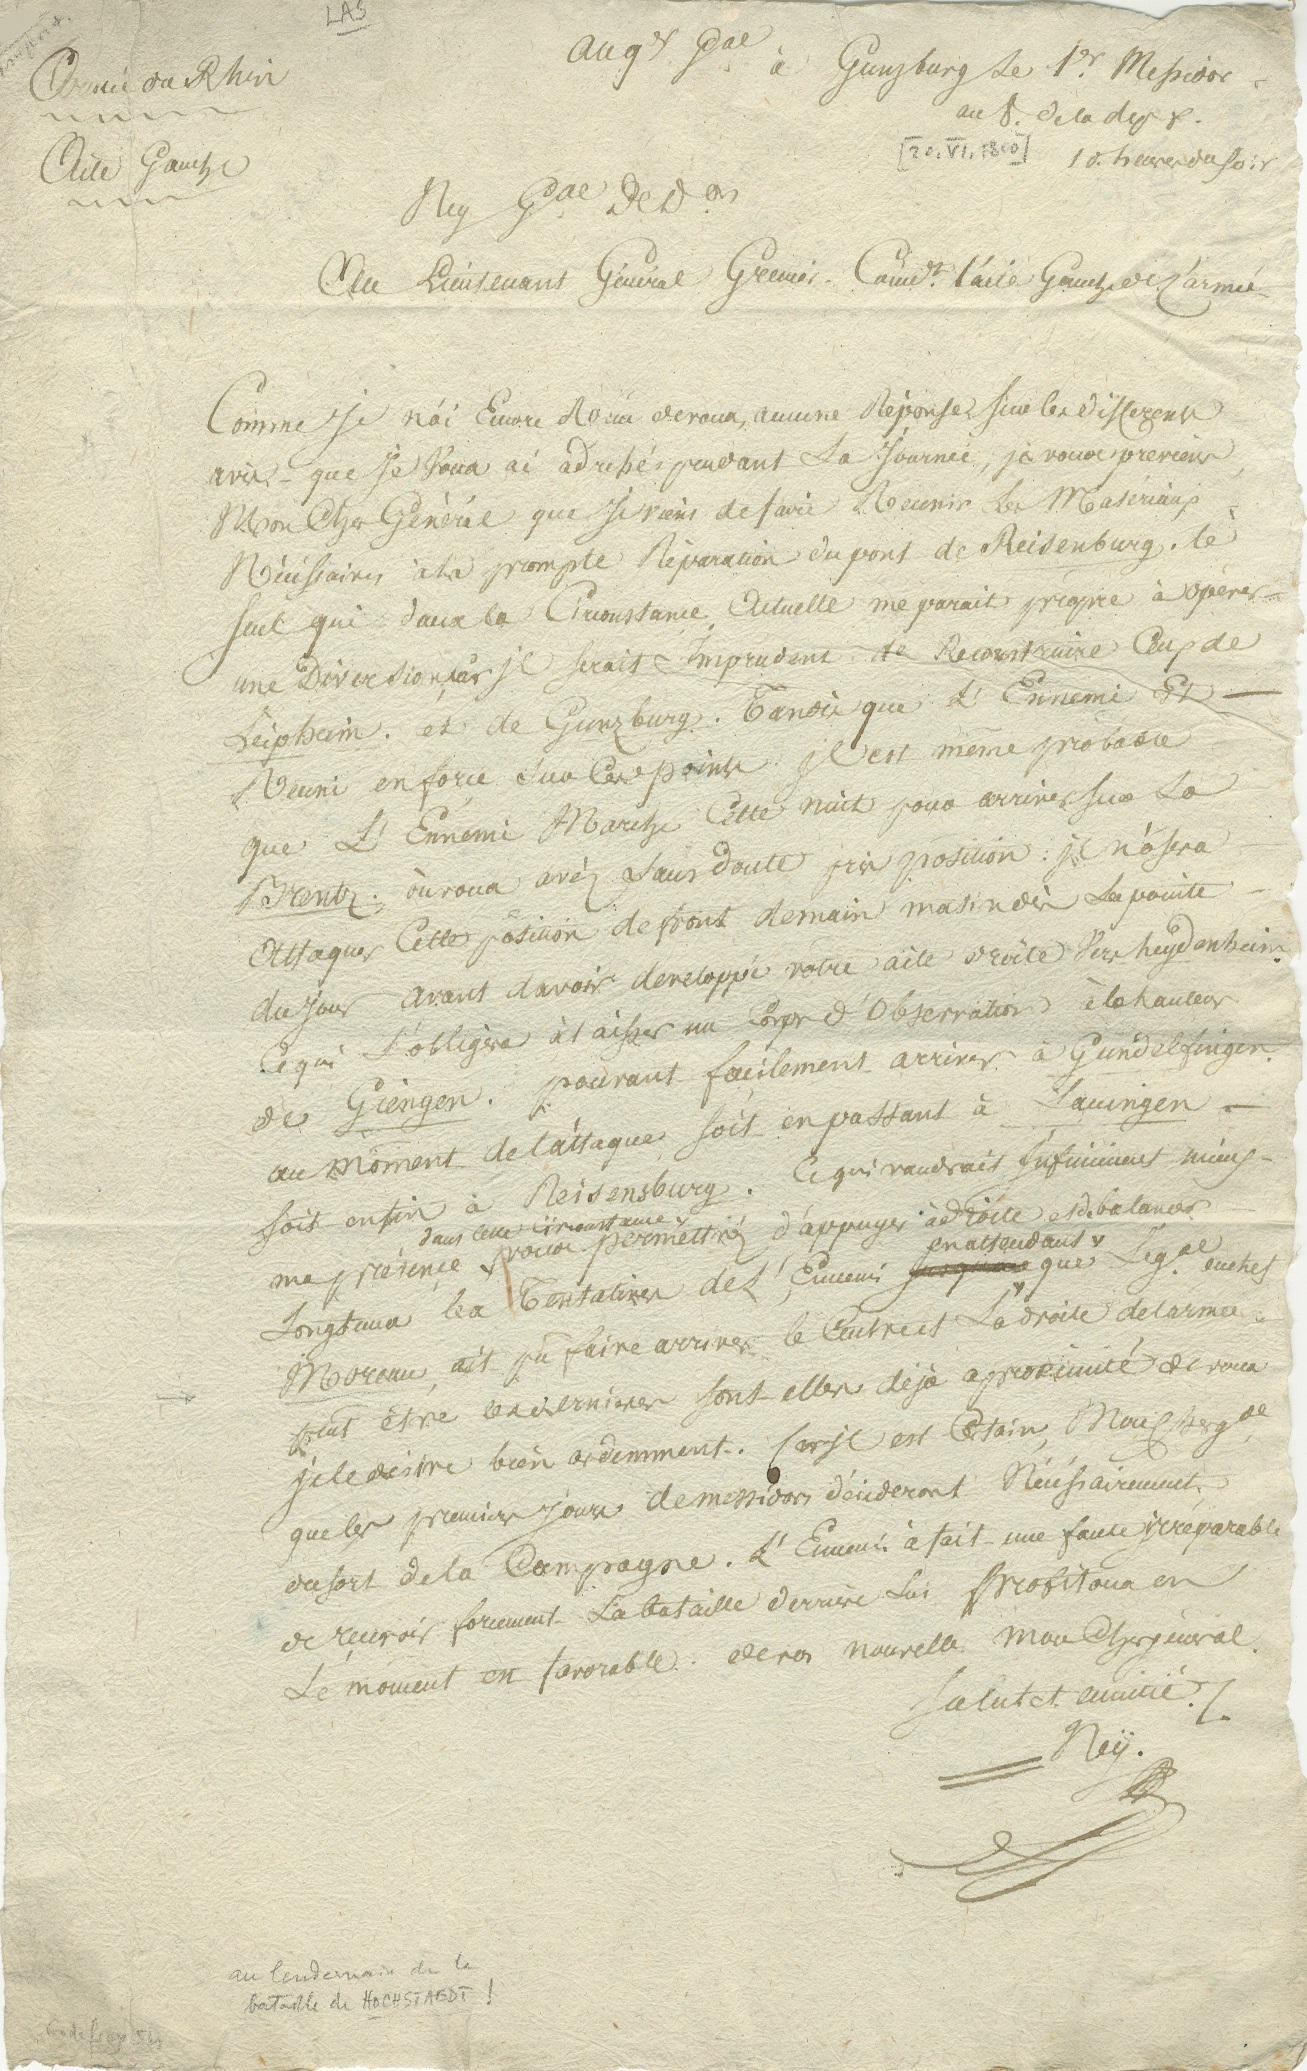 LAS
Armée du Rhin
Aile Gauche
au q.er G.al à Gunzburg le 1.er Messidor
an 8. de la Rep. f.
[20.VI.1800]
10. heures du soir
Ney G.al de D.on
Au Lieutenant Général Grenier. Comd.t l'aile Gauche de l'armée
Comme Je n'ai Encore Recu de vous, aucune Réponse, sur les differents
avis que Je Vous ai adressés pendant La Journée, je vous previens,
Mon Cher Général que Je viens de faire Reunir les Matériaux
Nécéssaires à la prompte Réparation du pont de Reisenburg. le
seul qui dans la Circonstance Actuelle me parait propre à opérer
une Diversion, car jl serait Imprudent de Reconstruire Ceux de
Leipheim. et de Gunzburg. Tandis que L'Ennemi Est
Reuni en force sur Ces points. jl est même probable
que L'Ennemi Marche Cette nuit pour arriver sur La
Brentz. où vous avéz sans doute pris position. jl n'osera
Attaquer Cette position de front demain matin dès La pointe
du Jour avant d'avoir developpé votre aile droite Vers heydenheim.
Ce qui L'obligera à Laisser un Corps d'Observation à la hauteur
de Giengen. pouvant facilement arriver à Gundelfingen.
au moment de l'attaque soit en passant à Lauingen
soit enfin à Reisensburg. Ce qui vaudrait Infiniment mieux
dans cette circonstance
ma présence vous permettréz d'appuyer à droite et de balancer
en attendant
Longtems les Tentatives de L'Ennemi que Le g.al en chef
Moreau, ait pu faire arriver le Centre et La droite de l'armée
peut être ces dernieres sont-elles déjà a proximité de vous
je le désire bien ardemment. Car jl est Certain, Mon Cher g.al
que les premiers jours de messidor décideront Nécéssairement
du sort de la Campagne. L'Ennemi à fait une faute irréparable
de recevoir forcement La bataille derrière Lui profitons en
Le moment est favorable. de vos nouvelles mon Cher général.
Salut et amitié./.
Ney.
au lendemain de la
bataille de HOCHSTAEDT !